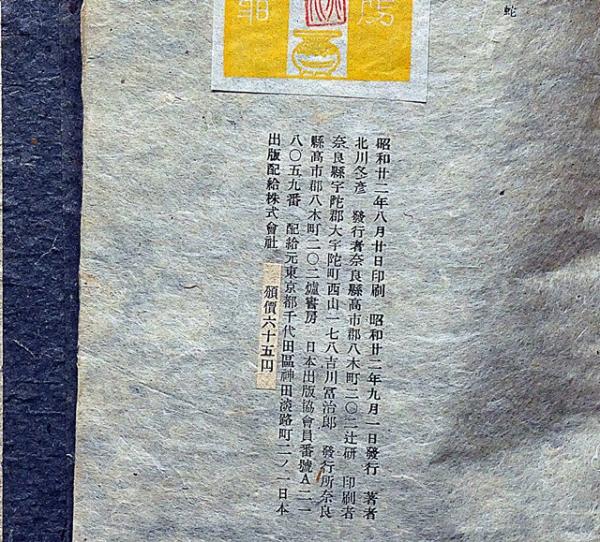 蛇
昭和廿二年八月廿日印刷　昭和廿二年九月一日發行　著者
北川冬彦　發行者奈良縣高市郡八木町二〇二辻研　印刷者
奈良縣宇陀郡大宇陀町西山一七八吉川冨治郎　發行所奈良
縣高市郡八木町二〇二爐書房　日本出版協會員番號A二一
八〇五九番　配給元東京都千代田區神田淡路町二ノ一日本
出版配給株式會社　頒價六十五円